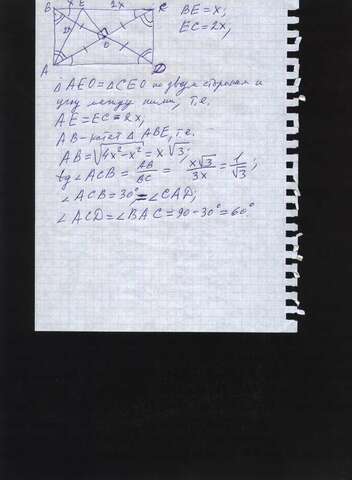 B x E 2x C
BE = x;
EC = 2x,
O
A D
Δ AEO = Δ CEO по двум сторонам и
углу между ними, т.е.
AE = EC = 2x,
AB – катет Δ ABE, т.е.
AB = √4x² – x² = x√3;
tg ∠ ACB = AB/BC = x√3/3x = 1/√3;
∠ ACB = 30° = ∠ CAD;
∠ ACD = ∠ BAC = 90 – 30° = 60°